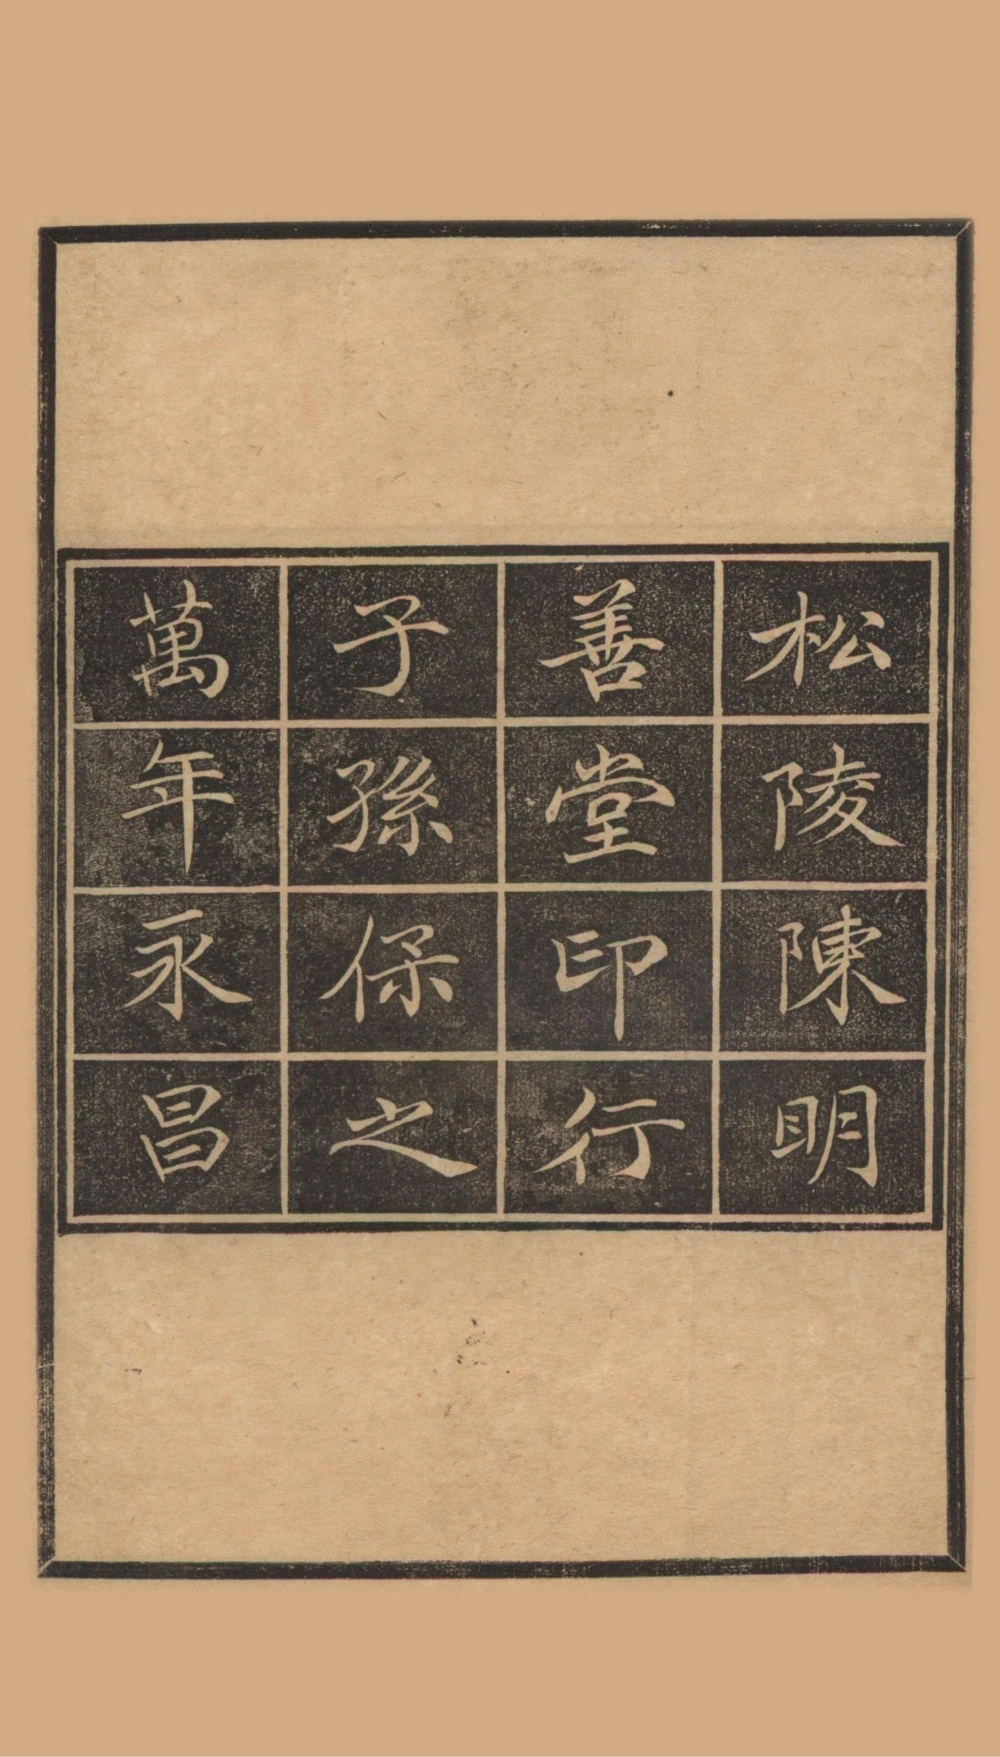 松陵陳明
善堂印行
子孫保之
萬年永昌